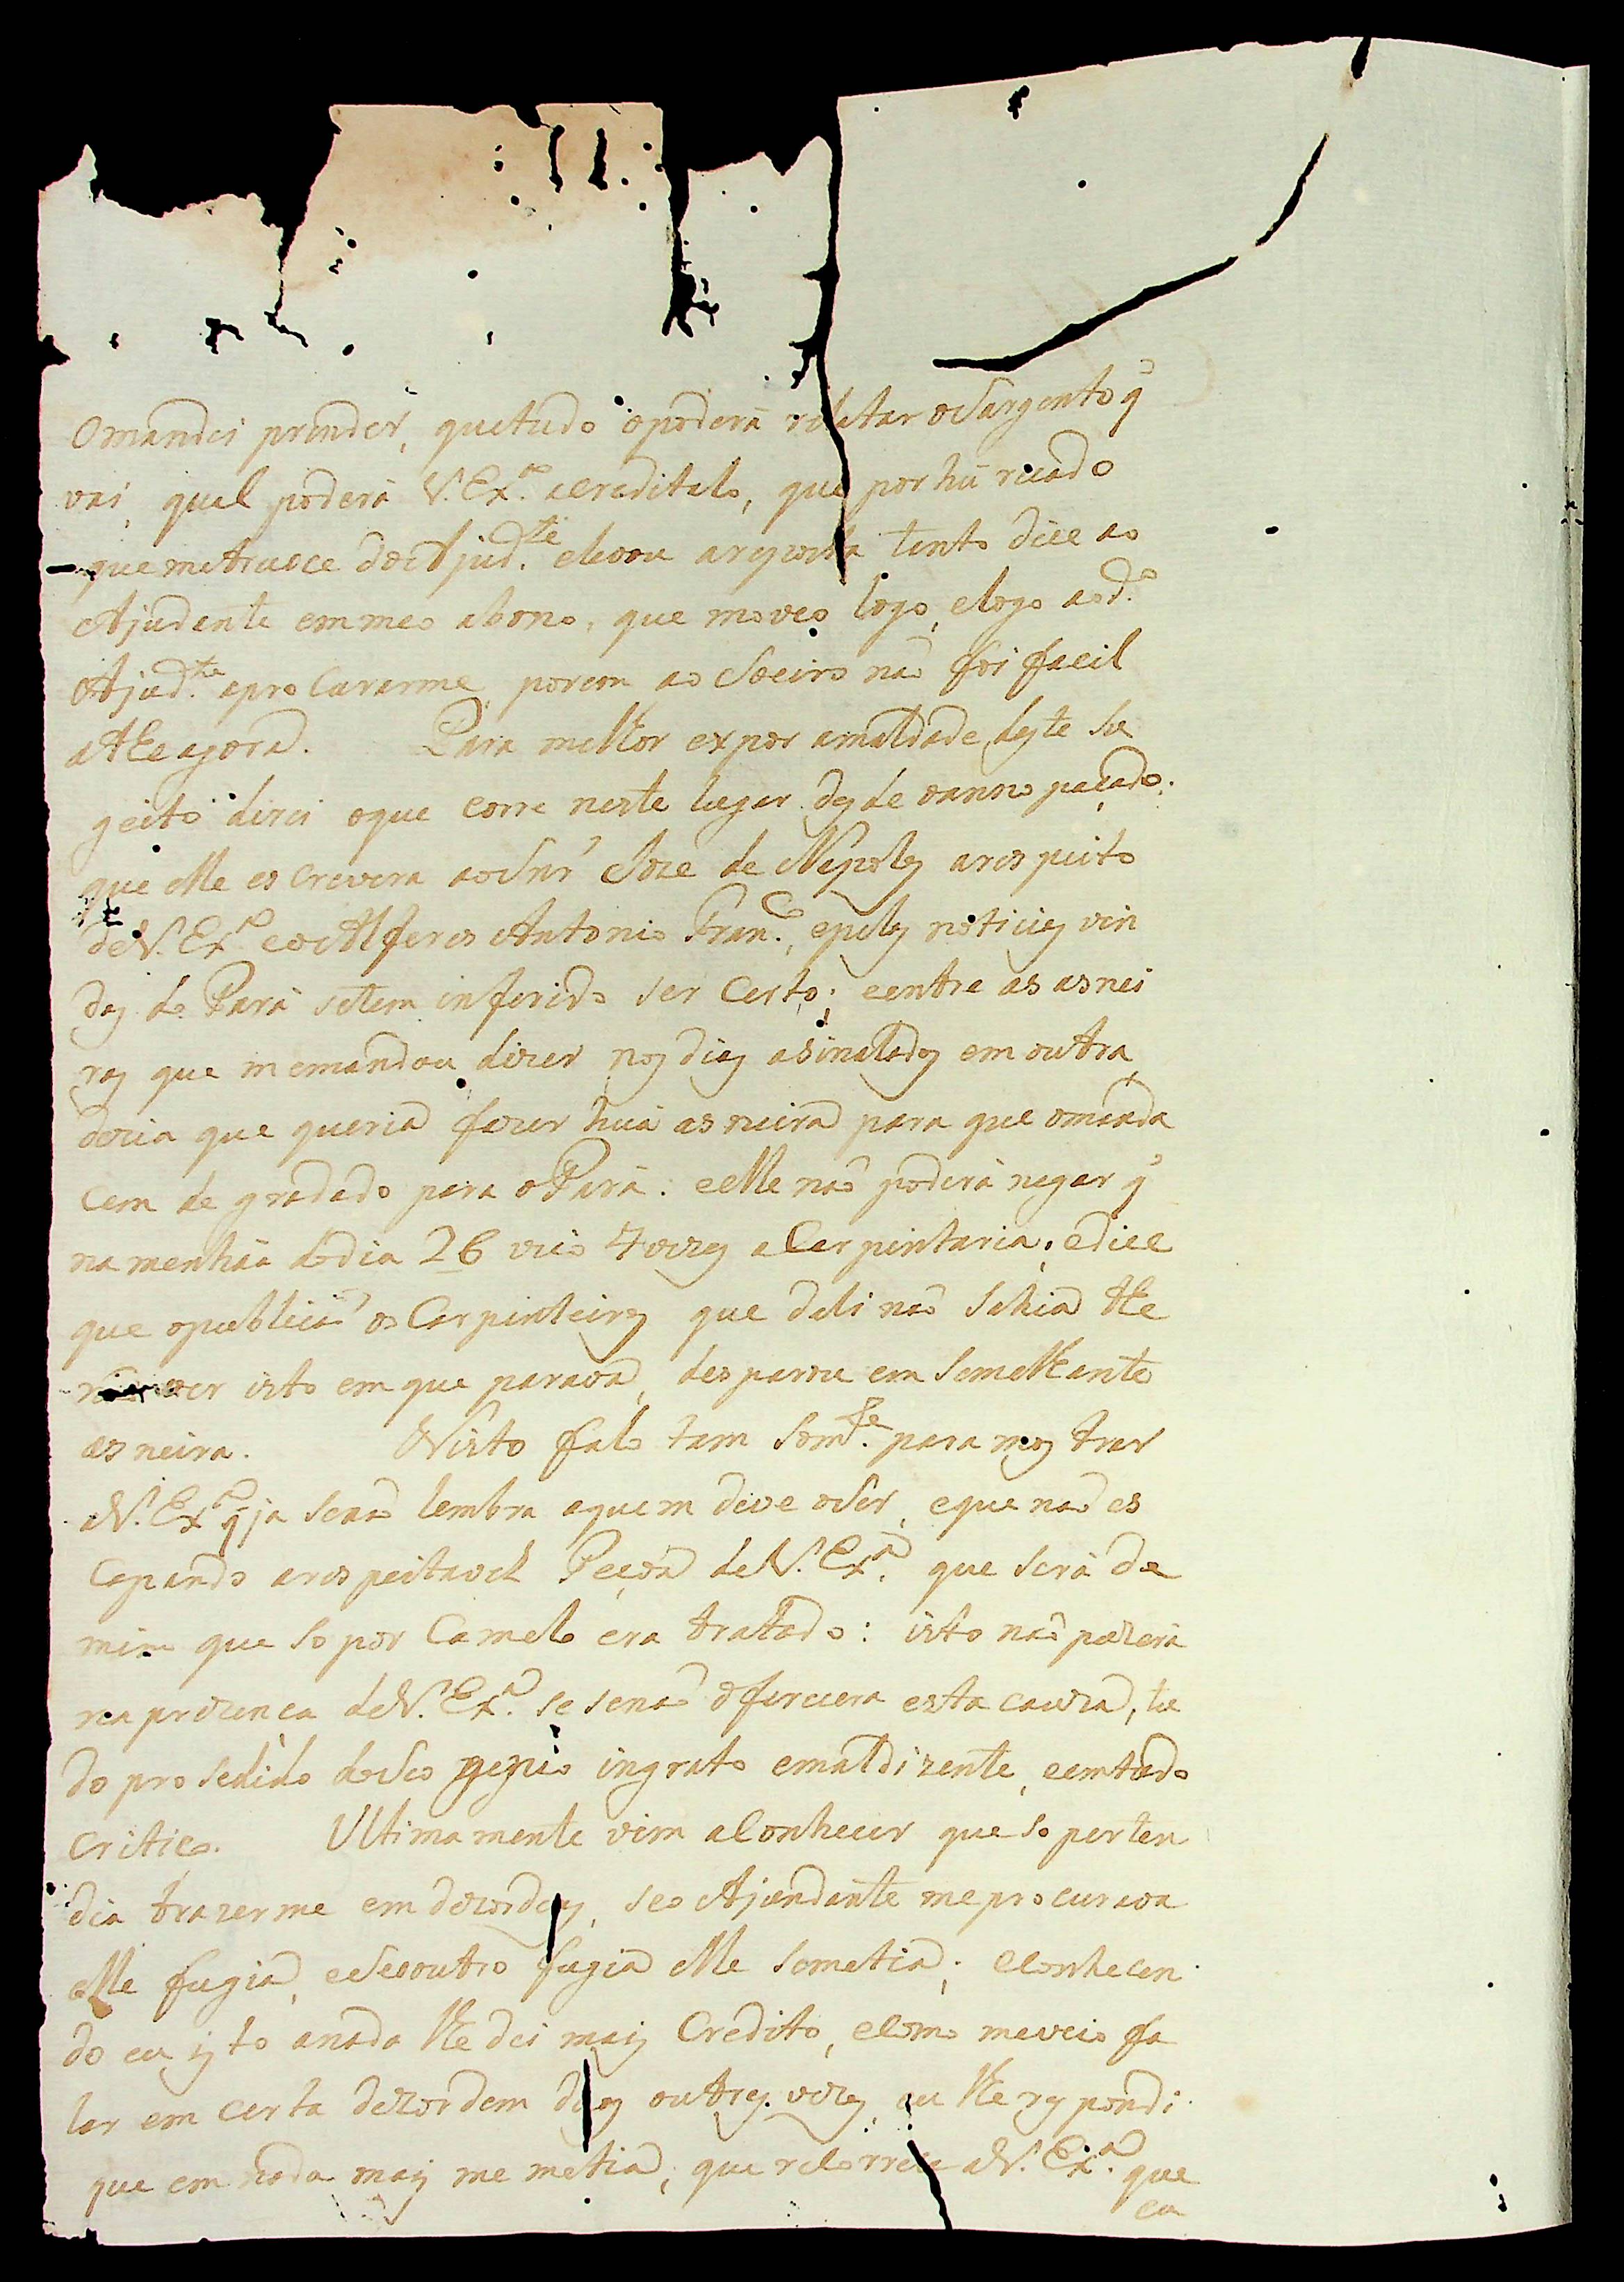 Omandei prender, quetudo opoderá relatar oSargento q̃
vai, qual poderá V. Ex.ª acreditalo, que por hũ recado
que metrusce do Ajud.te elevou areposta tanto dice ao
Ajudante emmeo abono, que moveo logo, elogo aod.º
Ajud.te aproCurarme, porem ao Soeiro naõ foi facil
atheagora. Para melhor expor amaldade deste su
geito direi oque corre neste lugar desde oanno paçado.
que elle esCrevera aoSnr̃ Joze de Napoles arespeito
deV. Ex.ª eoAlferes Antonio Fran.co, epelas noticias vin
das do Pará setem inferido ser Certo; eentre as asnei
ras que memandou dizer nos dias asinalados em outra
dizia que queria fazer huã asneira para que omanda
cem degradado para oPará. eelle naõ poderá negar q̃
namenhãa dodia 26 veio 4 vezes aCarpintaria, edice
que opublicaõ os Carpinteiros que dali naõ Sahia the
naõ ver isto emque parava, desparou em Semelhante
asneira. Nisto falo tam Som.te para mostrar
aV. Ex.ª q̃ ja senaõ lembra aquem deve oSer, eque naõ es
Capando arespeitavel Peçoa deV. Ex.ª que será de
mim que so por Camelo era tratado: isto naõ pozera
na prezenca deV. Ex.ª se senaõ oferecera esta cauza, tu
do prosedido doSeo genio ingrato emaldizente, eemtudo
Critico. Ultimamente vim aConhecer que so perten
dia trazerme em dezordens, seo Ajundante meprocurava
elle fugia, eSeoutro fugia elle Sometia; eConhecen
do eu isto anada lhe dei mais Credito, eComo meveio fa
lar em certa dezordem das outras vezes, eu lhe respondi
que em nada mais me metia, que reCorrese aV. Ex.ª que
eu